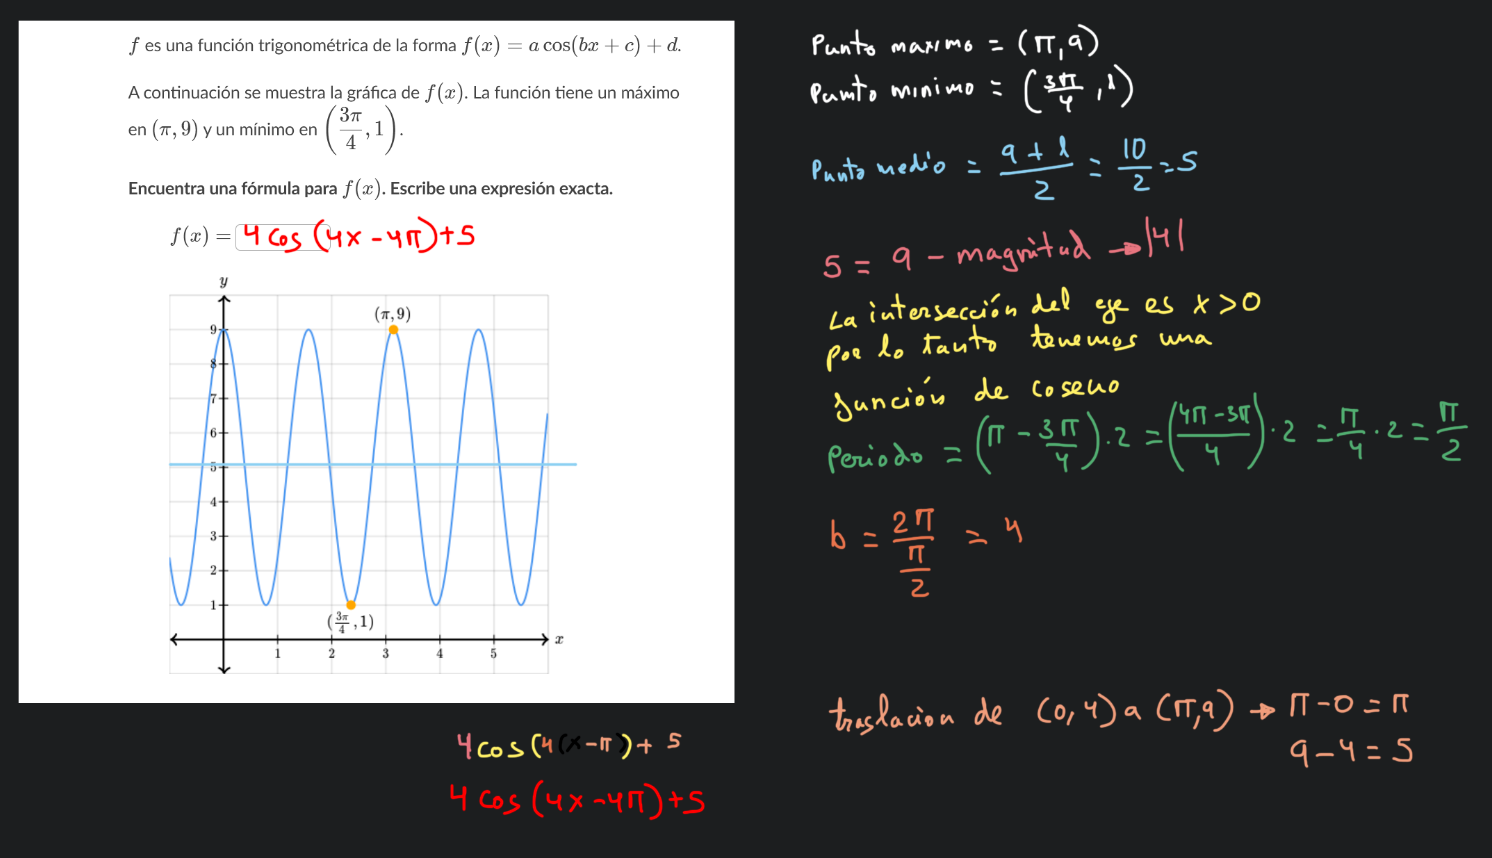 f es una función trigonométrica de la forma f(x) = a cos(bx + c) + d.
A continuación se muestra la gráfica de f(x). La función tiene un máximo
en (π, 9) y un mínimo en (3π/4, 1).
Encuentra una fórmula para f(x). Escribe una expresión exacta.
f(x) = 4 cos (4x - 4π) + 5
y
(π, 9)
9
8
7
6
5
4
3
2
1
(3π/4, 1)
x
1 2 3 4 5
4 cos (4(x - π)) + 5
4 cos (4x - 4π) + 5
Punto maximo = (π, 9)
Punto minimo = (3π/4, 1)
Punto medio = (9 + 1)/2 = 10/2 = 5
5 = 9 - magnitud → |4|
La intersección del eje es x > 0
por lo tanto tenemos una
función de coseno
Periodo = (π - 3π/4) · 2 = ((4π - 3π)/4) · 2 = π/4 · 2 = π/2
b = 2π/(π/2) = 4
traslacion de (0, 4) a (π, 9) → π - 0 = π
9 - 4 = 5